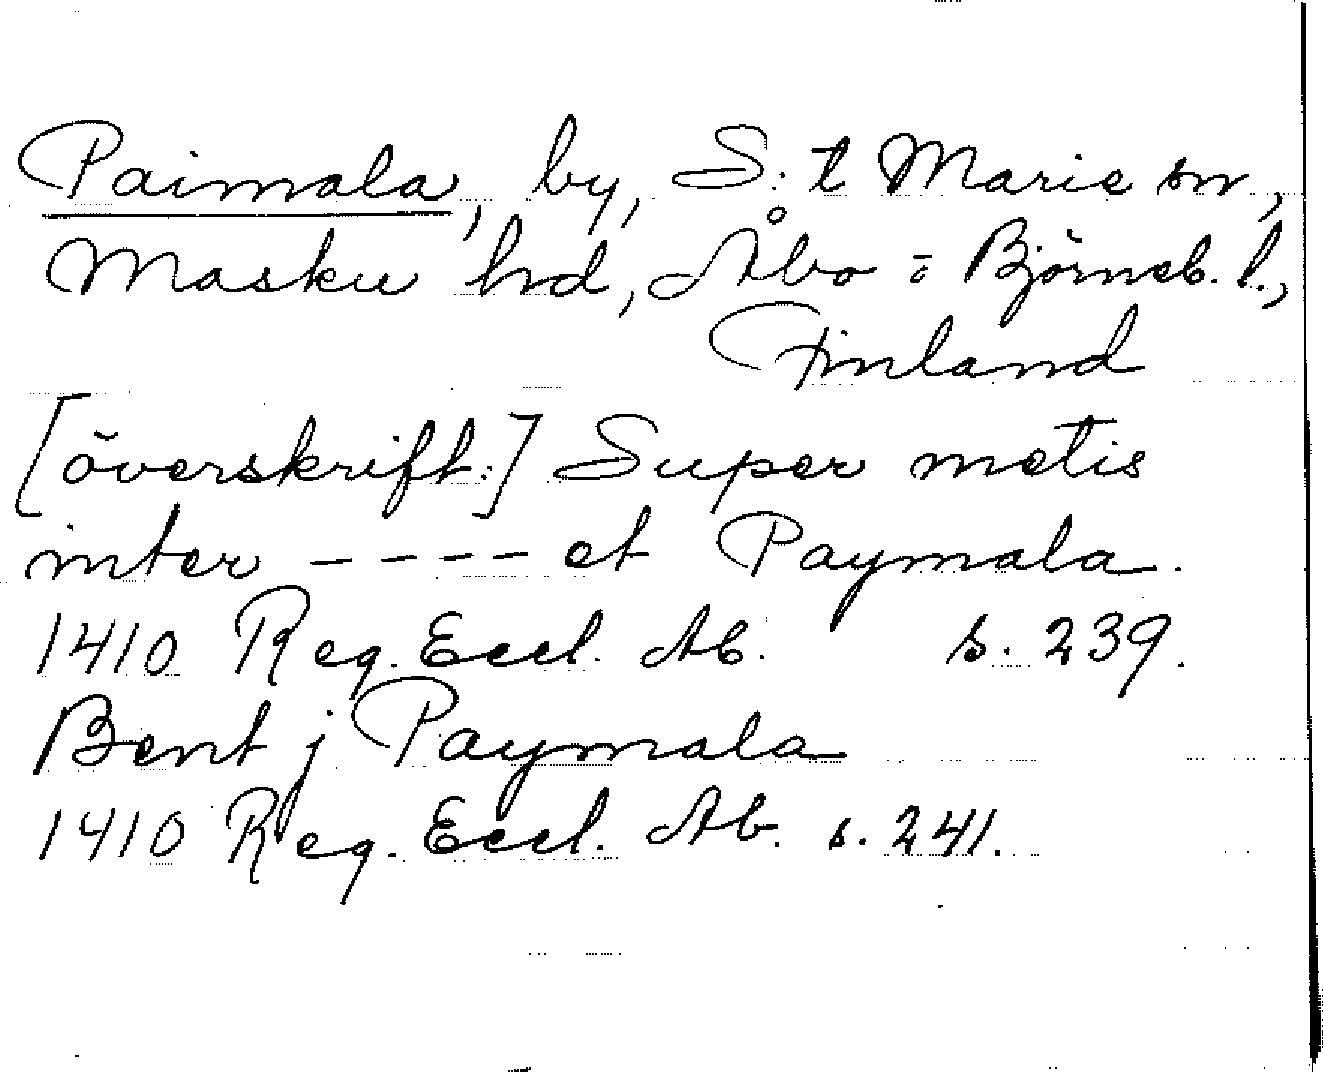 Paimala, by, S:t Marie sn,
Masku hrd, Åbo o Björneb. l.,
Finland
[överskrift:] Super metis
inter ---- et Paymala.
1410 Reg. Eccl. Ab. s. 239.
Bent j Paymala
1410 Reg. Eccl. Ab. s. 241.